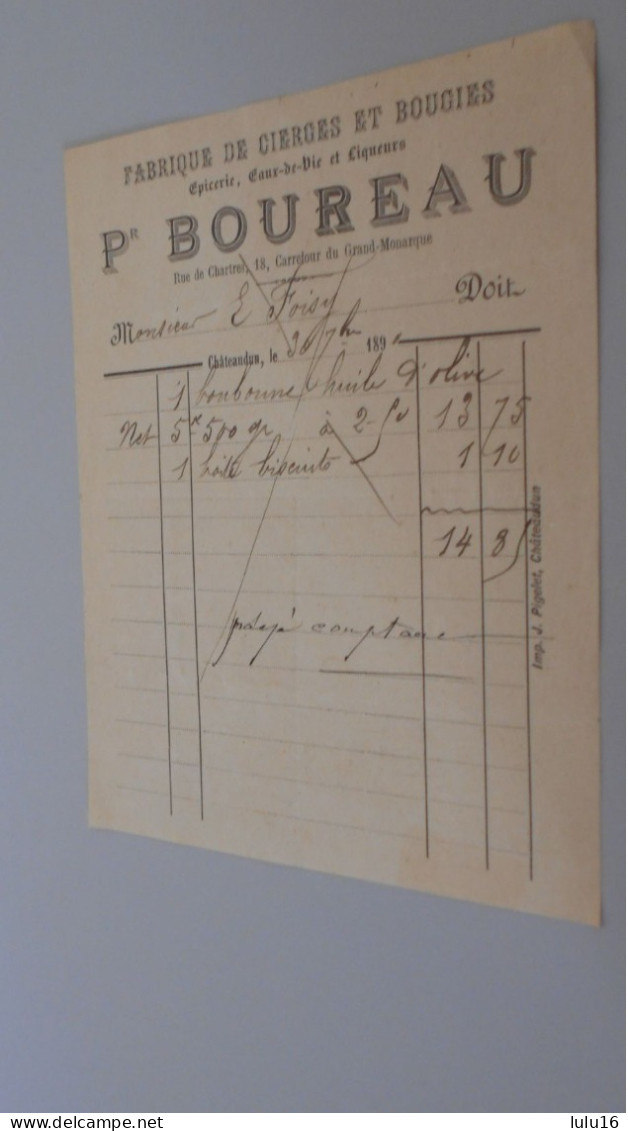 FABRIQUE DE CIERGES ET BOUGIES
Epicerie, Eaux-de-Vie et Liqueurs
Pr BOUREAU
Rue de Chartres, 18, Carrefour du Grand-Monarque
Monsieur E Foisy Doit
Châteaudun, le 30 7bre 189
1 bonbonne huile d'olive
Net 5k 500 gr à 2-50 13 75
1 boite biscuits 1 10
14 85
payé comptant
Imp. J. Pigelet, Châteaudun
lulu16